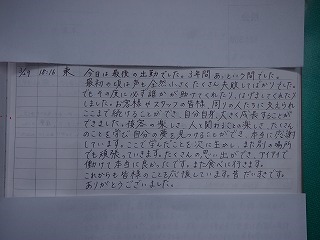 3/29 18-16 末 今日は最後の出勤でした。3年間あっという間でした。
最初の頃は声も全然小さくたくさん失敗してばかりでした。
でもその度に必ず誰かが助けてくれたり、はげましてくれたり
しました。お客様やスタッフの皆様、周りの人たちに支えられ
ここまで続けることができ、自分自身、大きく成長することが
できました。接客の楽しさ、人と関わることの楽しさ、たくさん
のことを学び自分の夢を見つけることができ、本当に感謝
しています。ここで学んだことを次に生かし、また別の場所
でも頑張っていきます。たくさんの思い出ができ、アイアイで
働けて本当に良かったです。また食べに行きます。
これからも皆様のことを応援しています。皆だいすきです。
ありがとうございました。